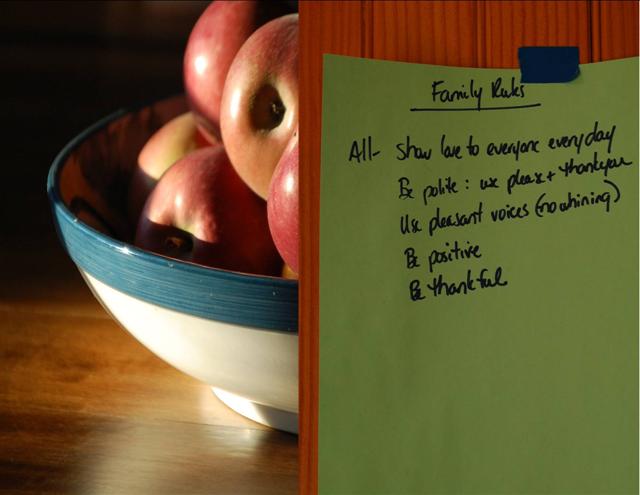 Family Rules
All- show love to everyone everyday
Be polite: use please + thankyou
Use pleasant voices (no whining)
Be positive
Be thankful